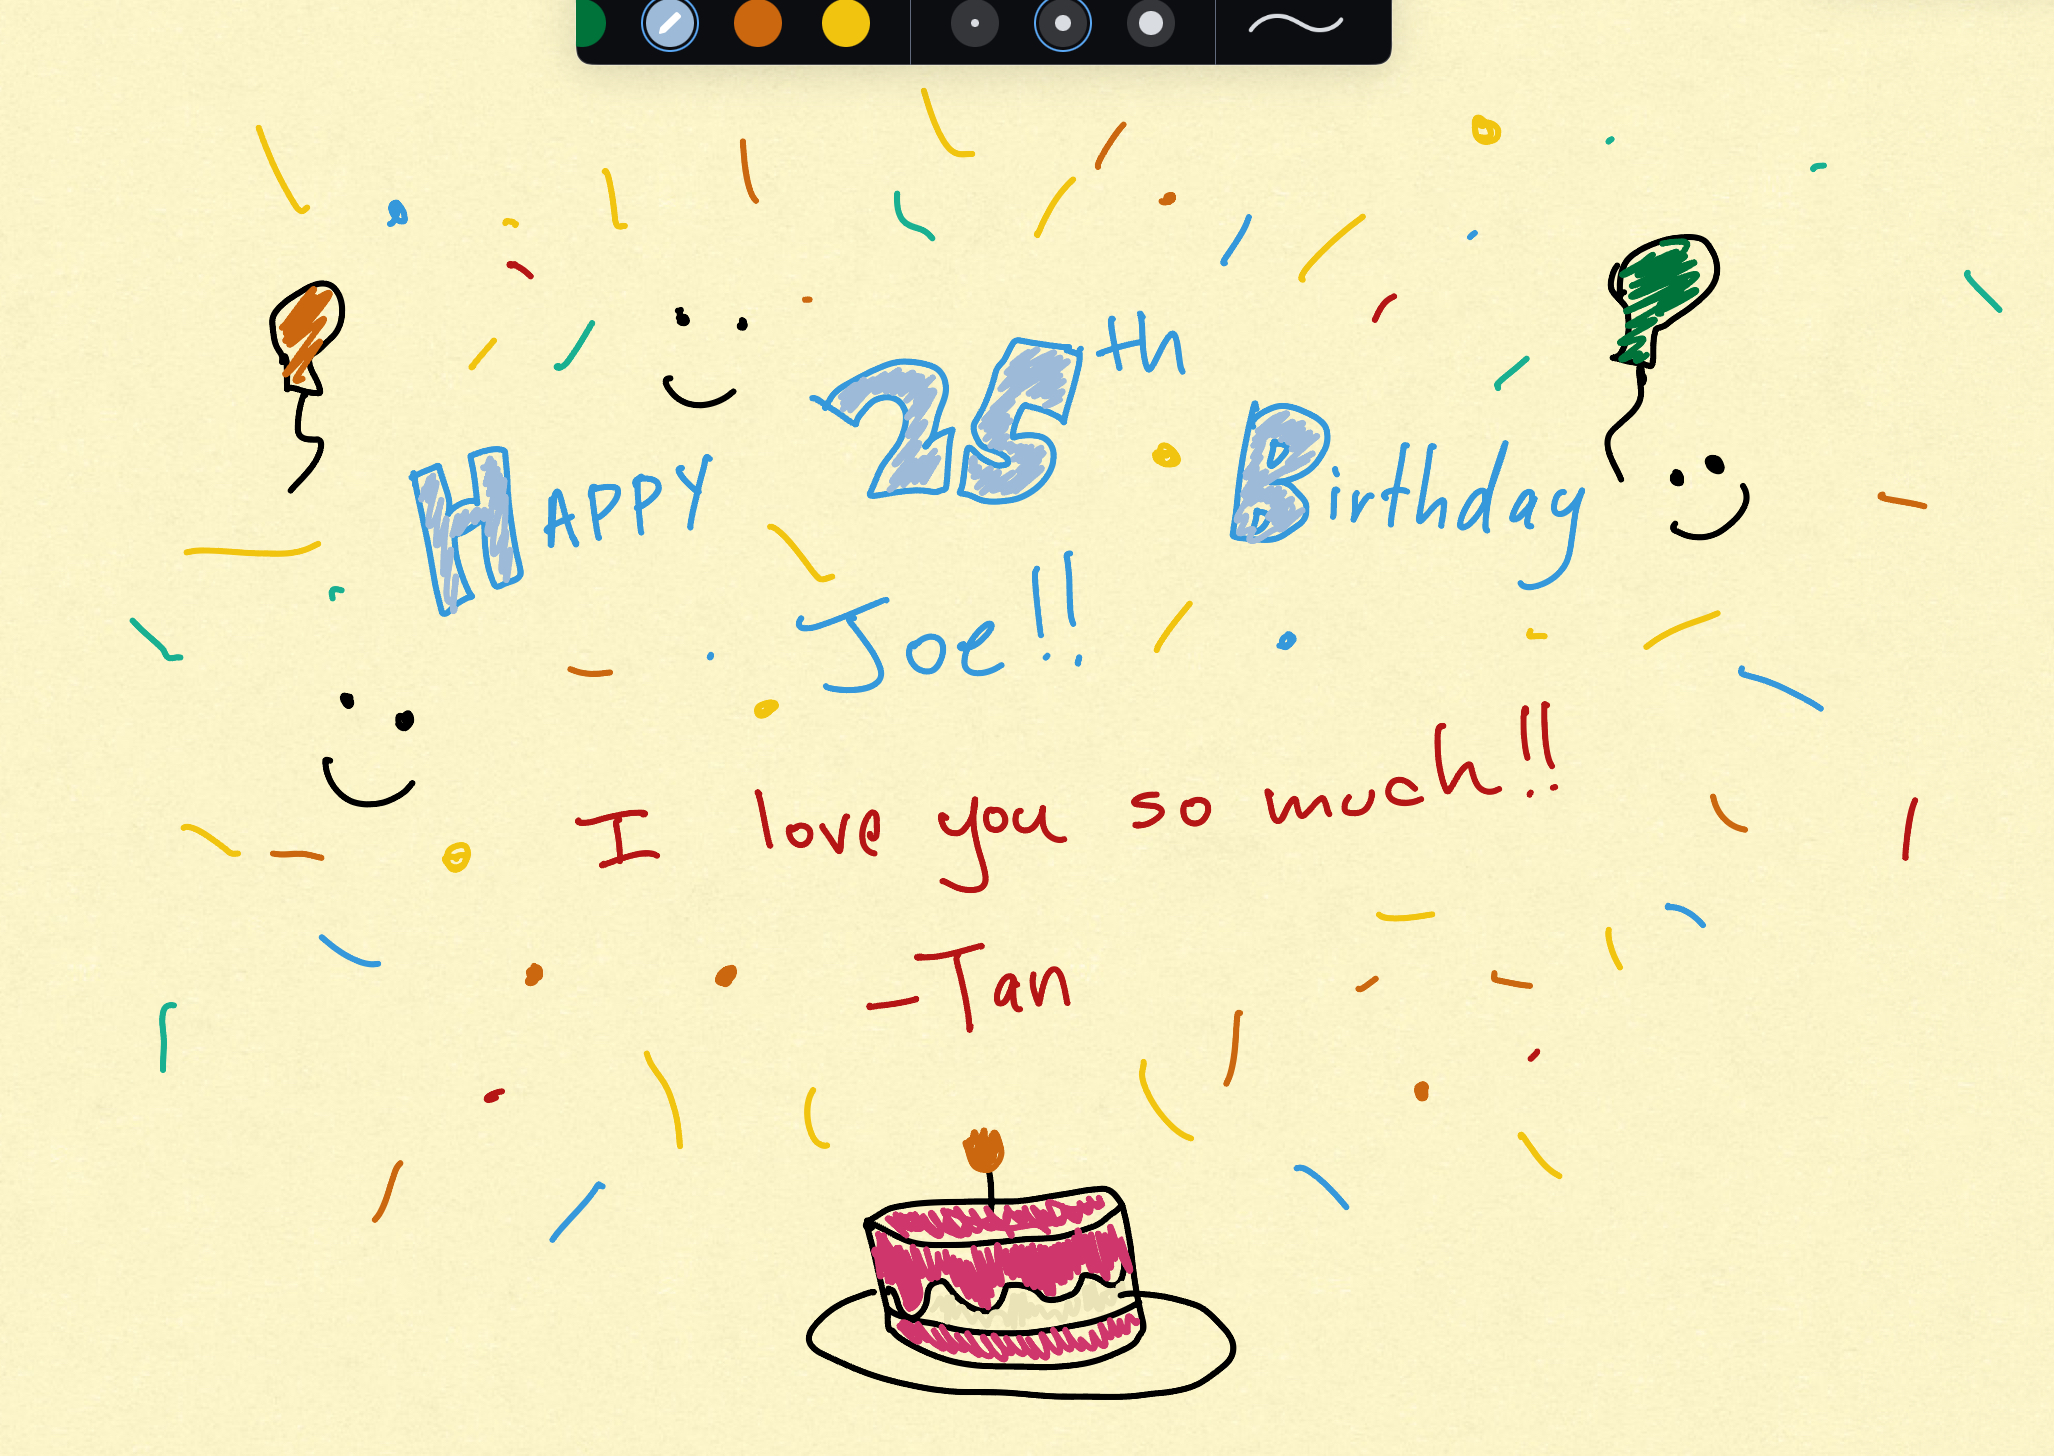 Happy 25th Birthday
Joe!!
I love you so much!!
-Tan